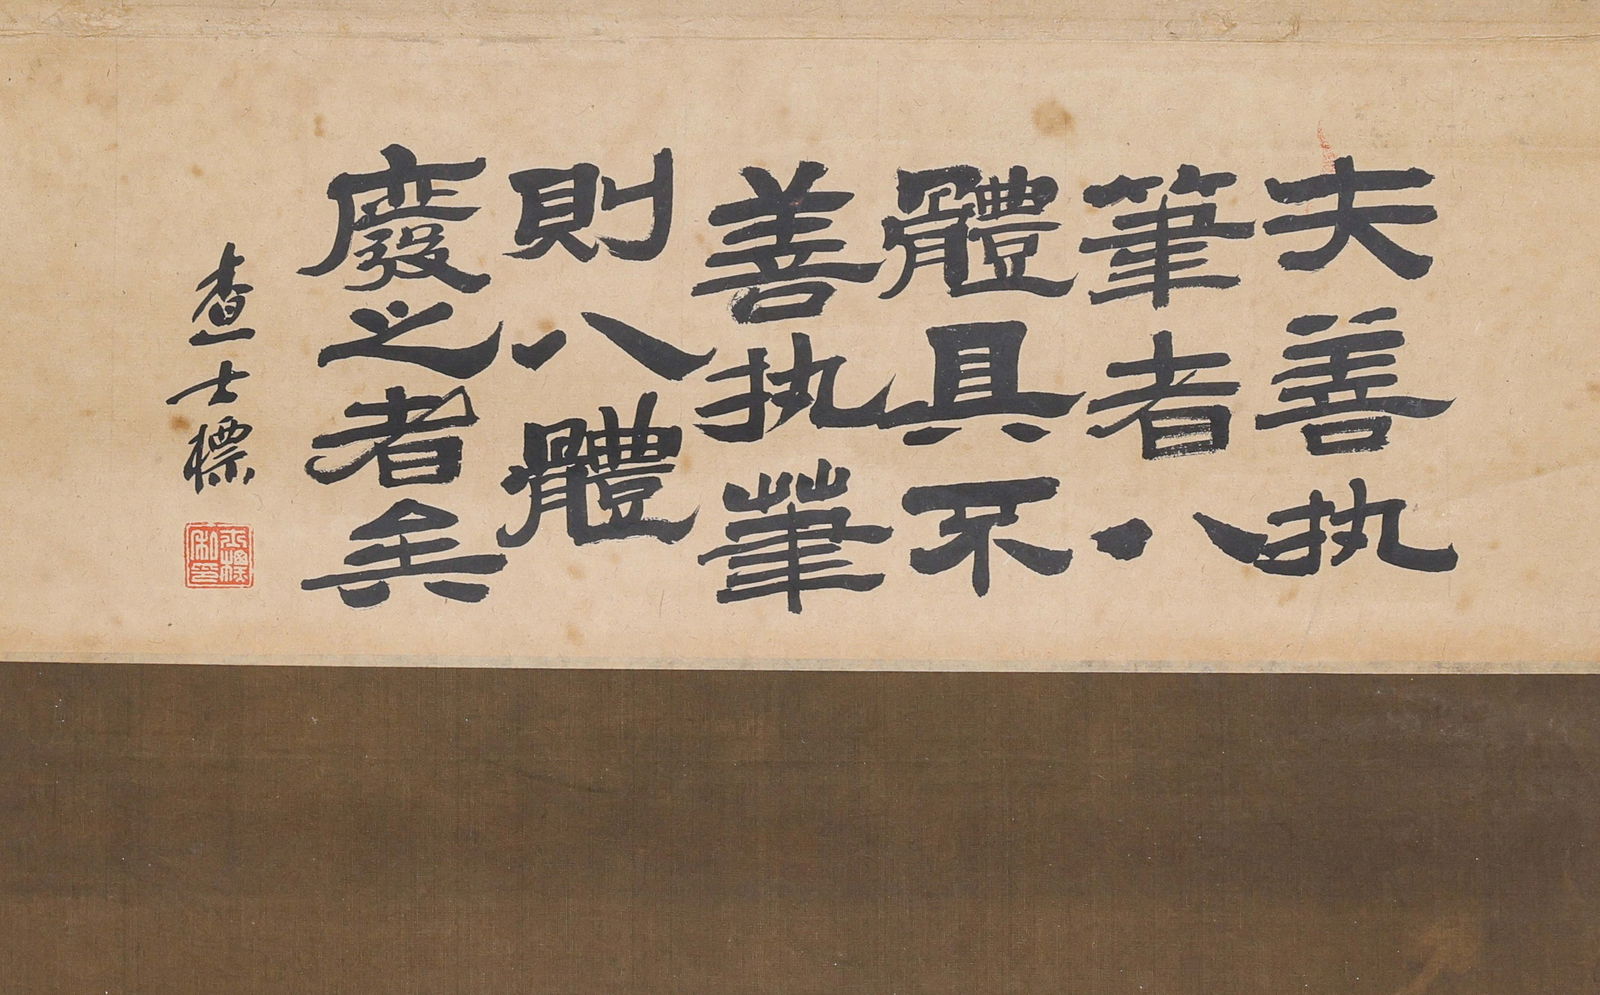 夫善执
筆者八
體具不
善执筆
則八體
廢之者矣
查士標
士標私印